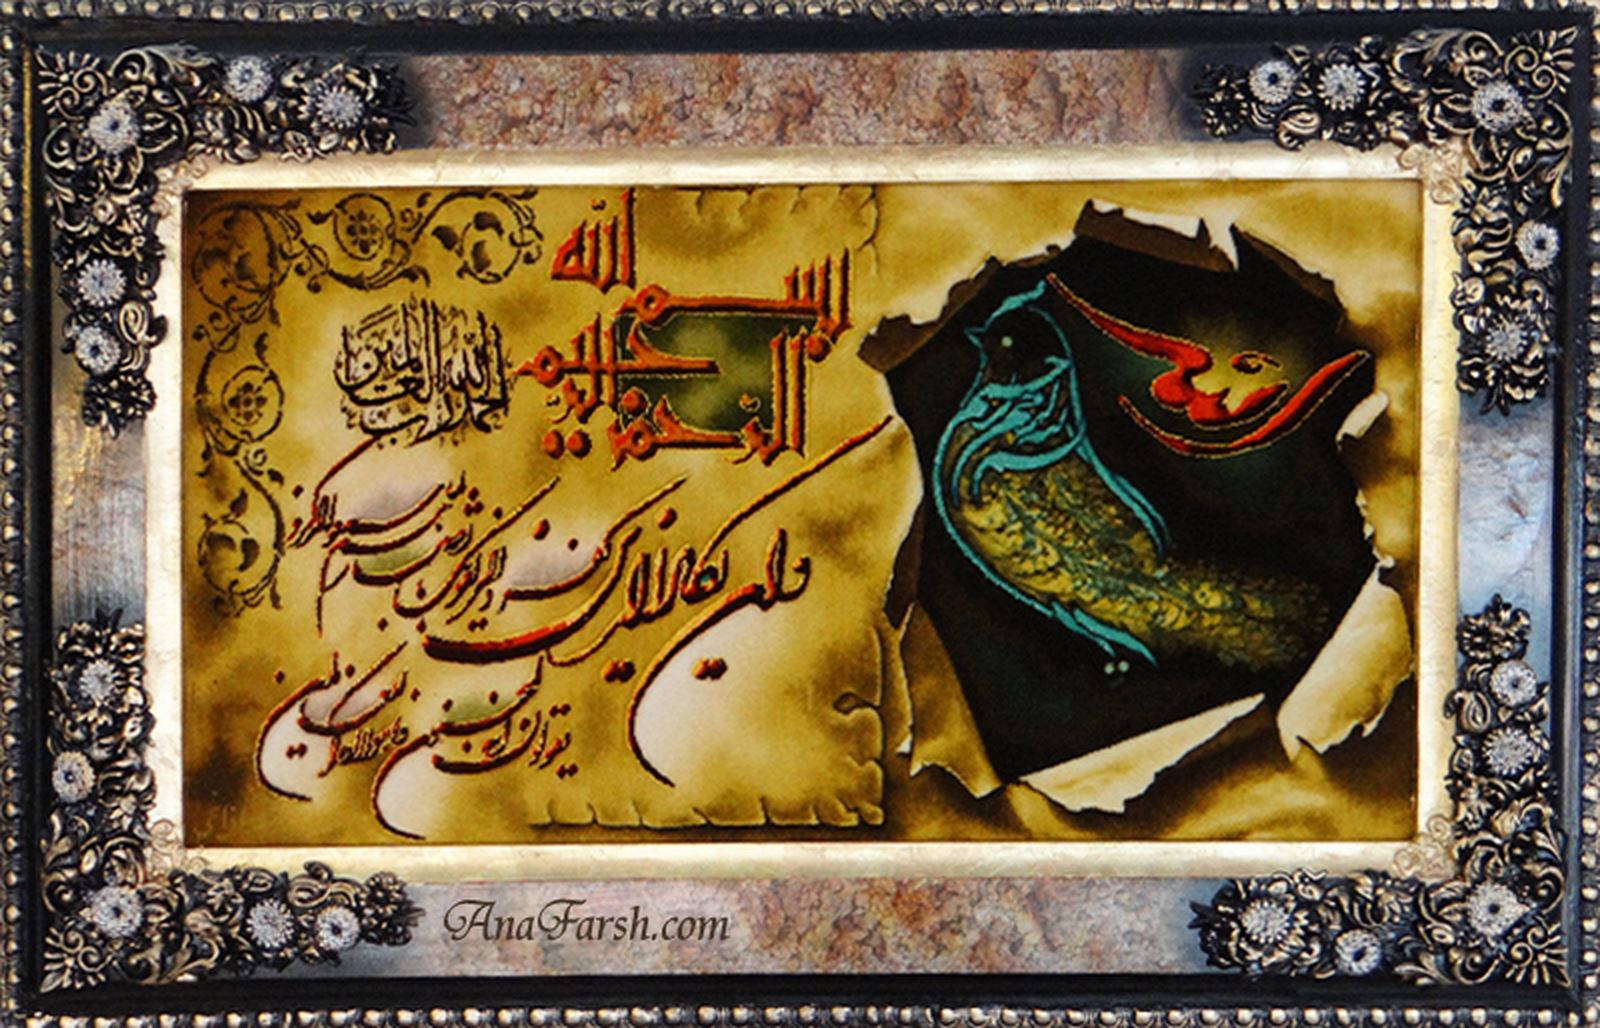 بسم الله
الرحمن الرحیم
الحمدلله رب العالمین
وان یکاد الذین کفروا لیزلقونک بابصارهم لما سمعوا الذکر و
یقولون انه لمجنون و ما هو الا ذکر للعالمین
AnaFarsh.com